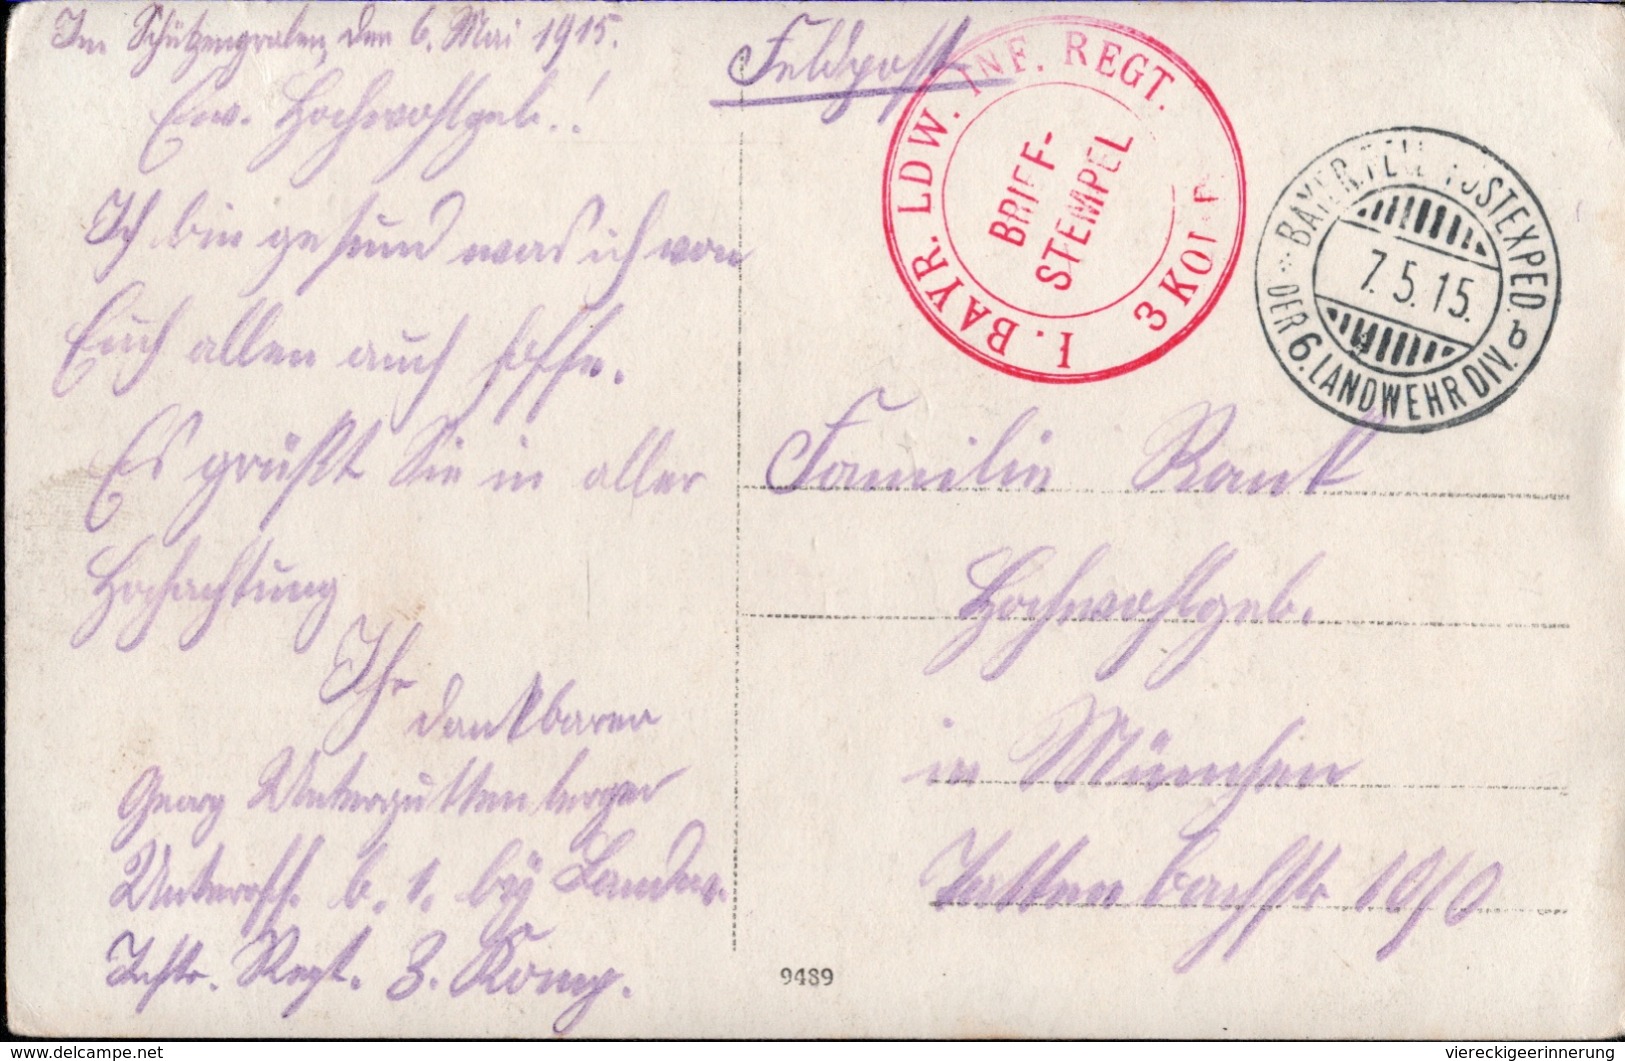 Im Schützengraben, den 6. Mai 1915.
Euer. Hochwohlgeb.!
Ich bin gesund was ich von
Euch allen auch hoffe.
Es grüßt Sie in aller
Hochachtung
Ihr
dankbarer
Georg Unterguttenberger
Unteroff. b. 1. bay Landw.
Inftr. Regt. 3. Komp.
Feldpost
I. BAYR. LDW. INF. REGT.
3 KOMP
BRIEF-
STEMPEL
BAYER. FELDPOSTEXPED. b
DER 6. LANDWEHR DIV.
7.5.15.
Familie Rank
Hochwohlgeb.
in München
Tattenbachstr 10/0
9489
delcampe.net
viereckigeerinnerung